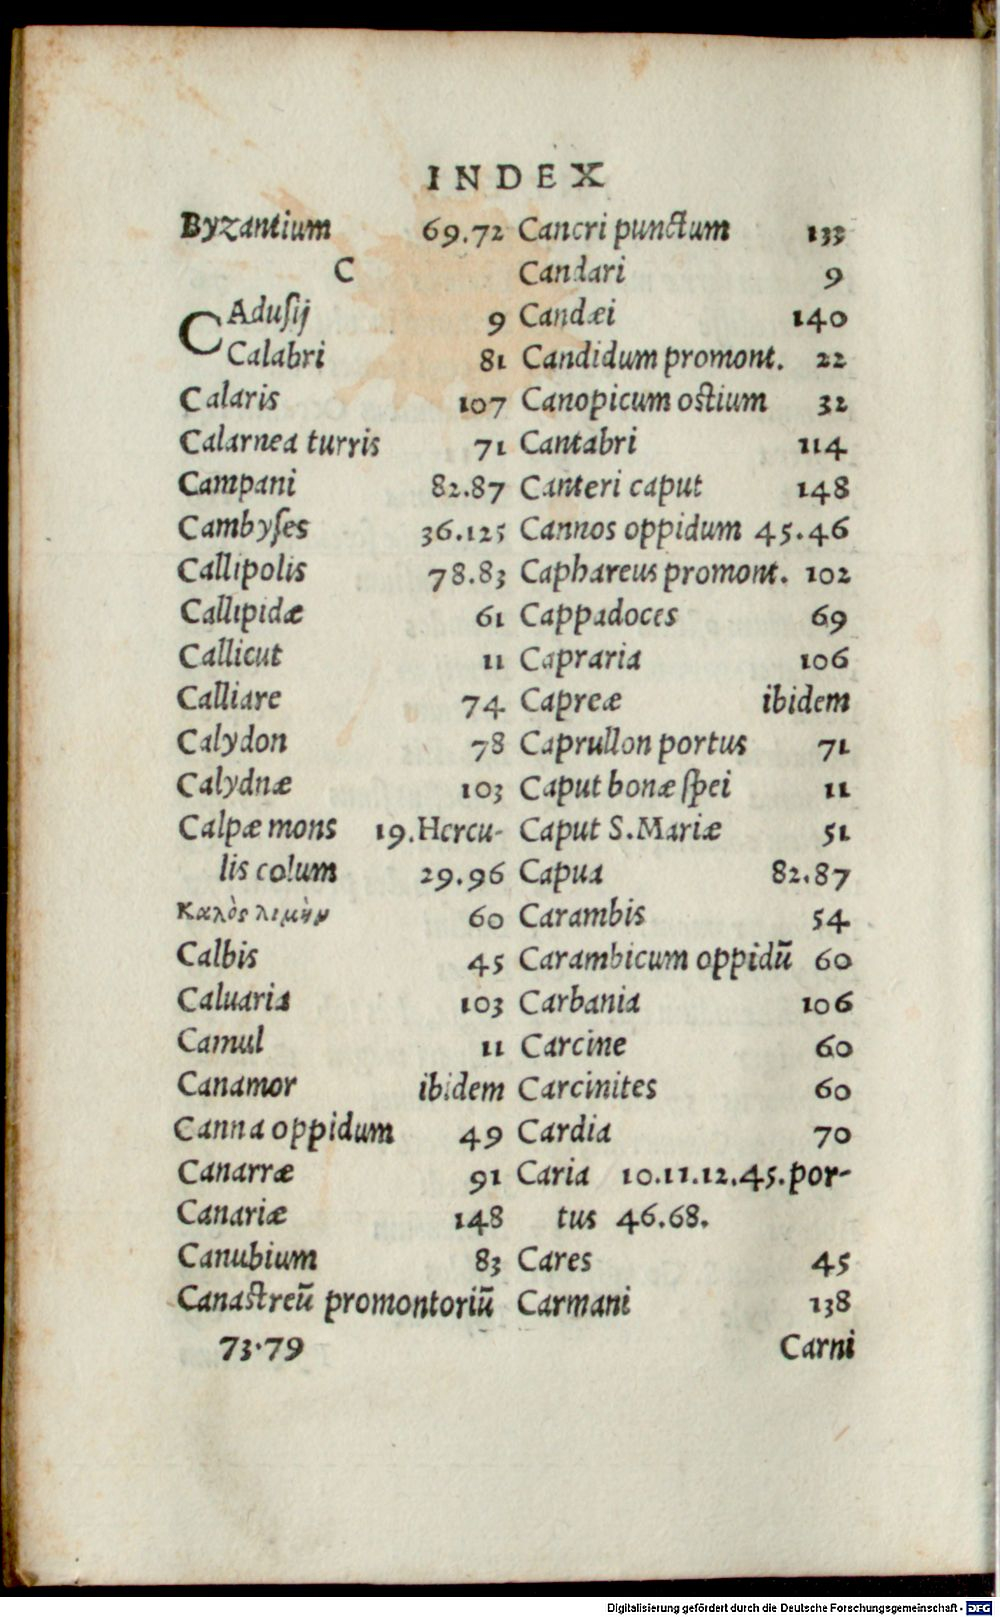 INDEX
Byzantium 69.72
C
CAduſij 9
Calabri 81
Calaris 107
Calarnea turris 71
Campani 82.87
Cambyſes 36.125
Callipolis 78.83
Callipidæ 61
Callicut 11
Calliare 74
Calydon 78
Calydnæ 103
Calpæ mons 19.Hercu-
lis colum 29.96
Καλὸς λιμὴν 60
Calbis 45
Caluaria 103
Camul 11
Canamor ibidem
Canna oppidum 49
Canarræ 91
Canariæ 148
Canubium 83
Canastreũ promontoriũ
73.79
Cancri punctum 133
Candari 9
Candæi 140
Candidum promont. 22
Canopicum ostium 32
Cantabri 114
Canteri caput 148
Cannos oppidum 45.46
Caphareus promont. 102
Cappadoces 69
Capraria 106
Capreæ ibidem
Caprullon portus 71
Caput bonæ ſpei 11
Caput S.Mariæ 51
Capua 82.87
Carambis 54
Carambicum oppidũ 60
Carbania 106
Carcine 60
Carcinites 60
Cardia 70
Caria 10.11.12.45.por-
tus 46.68.
Cares 45
Carmani 138
Carni
Digitalisierung gefördert durch die Deutsche Forschungsgemeinschaft - DFG